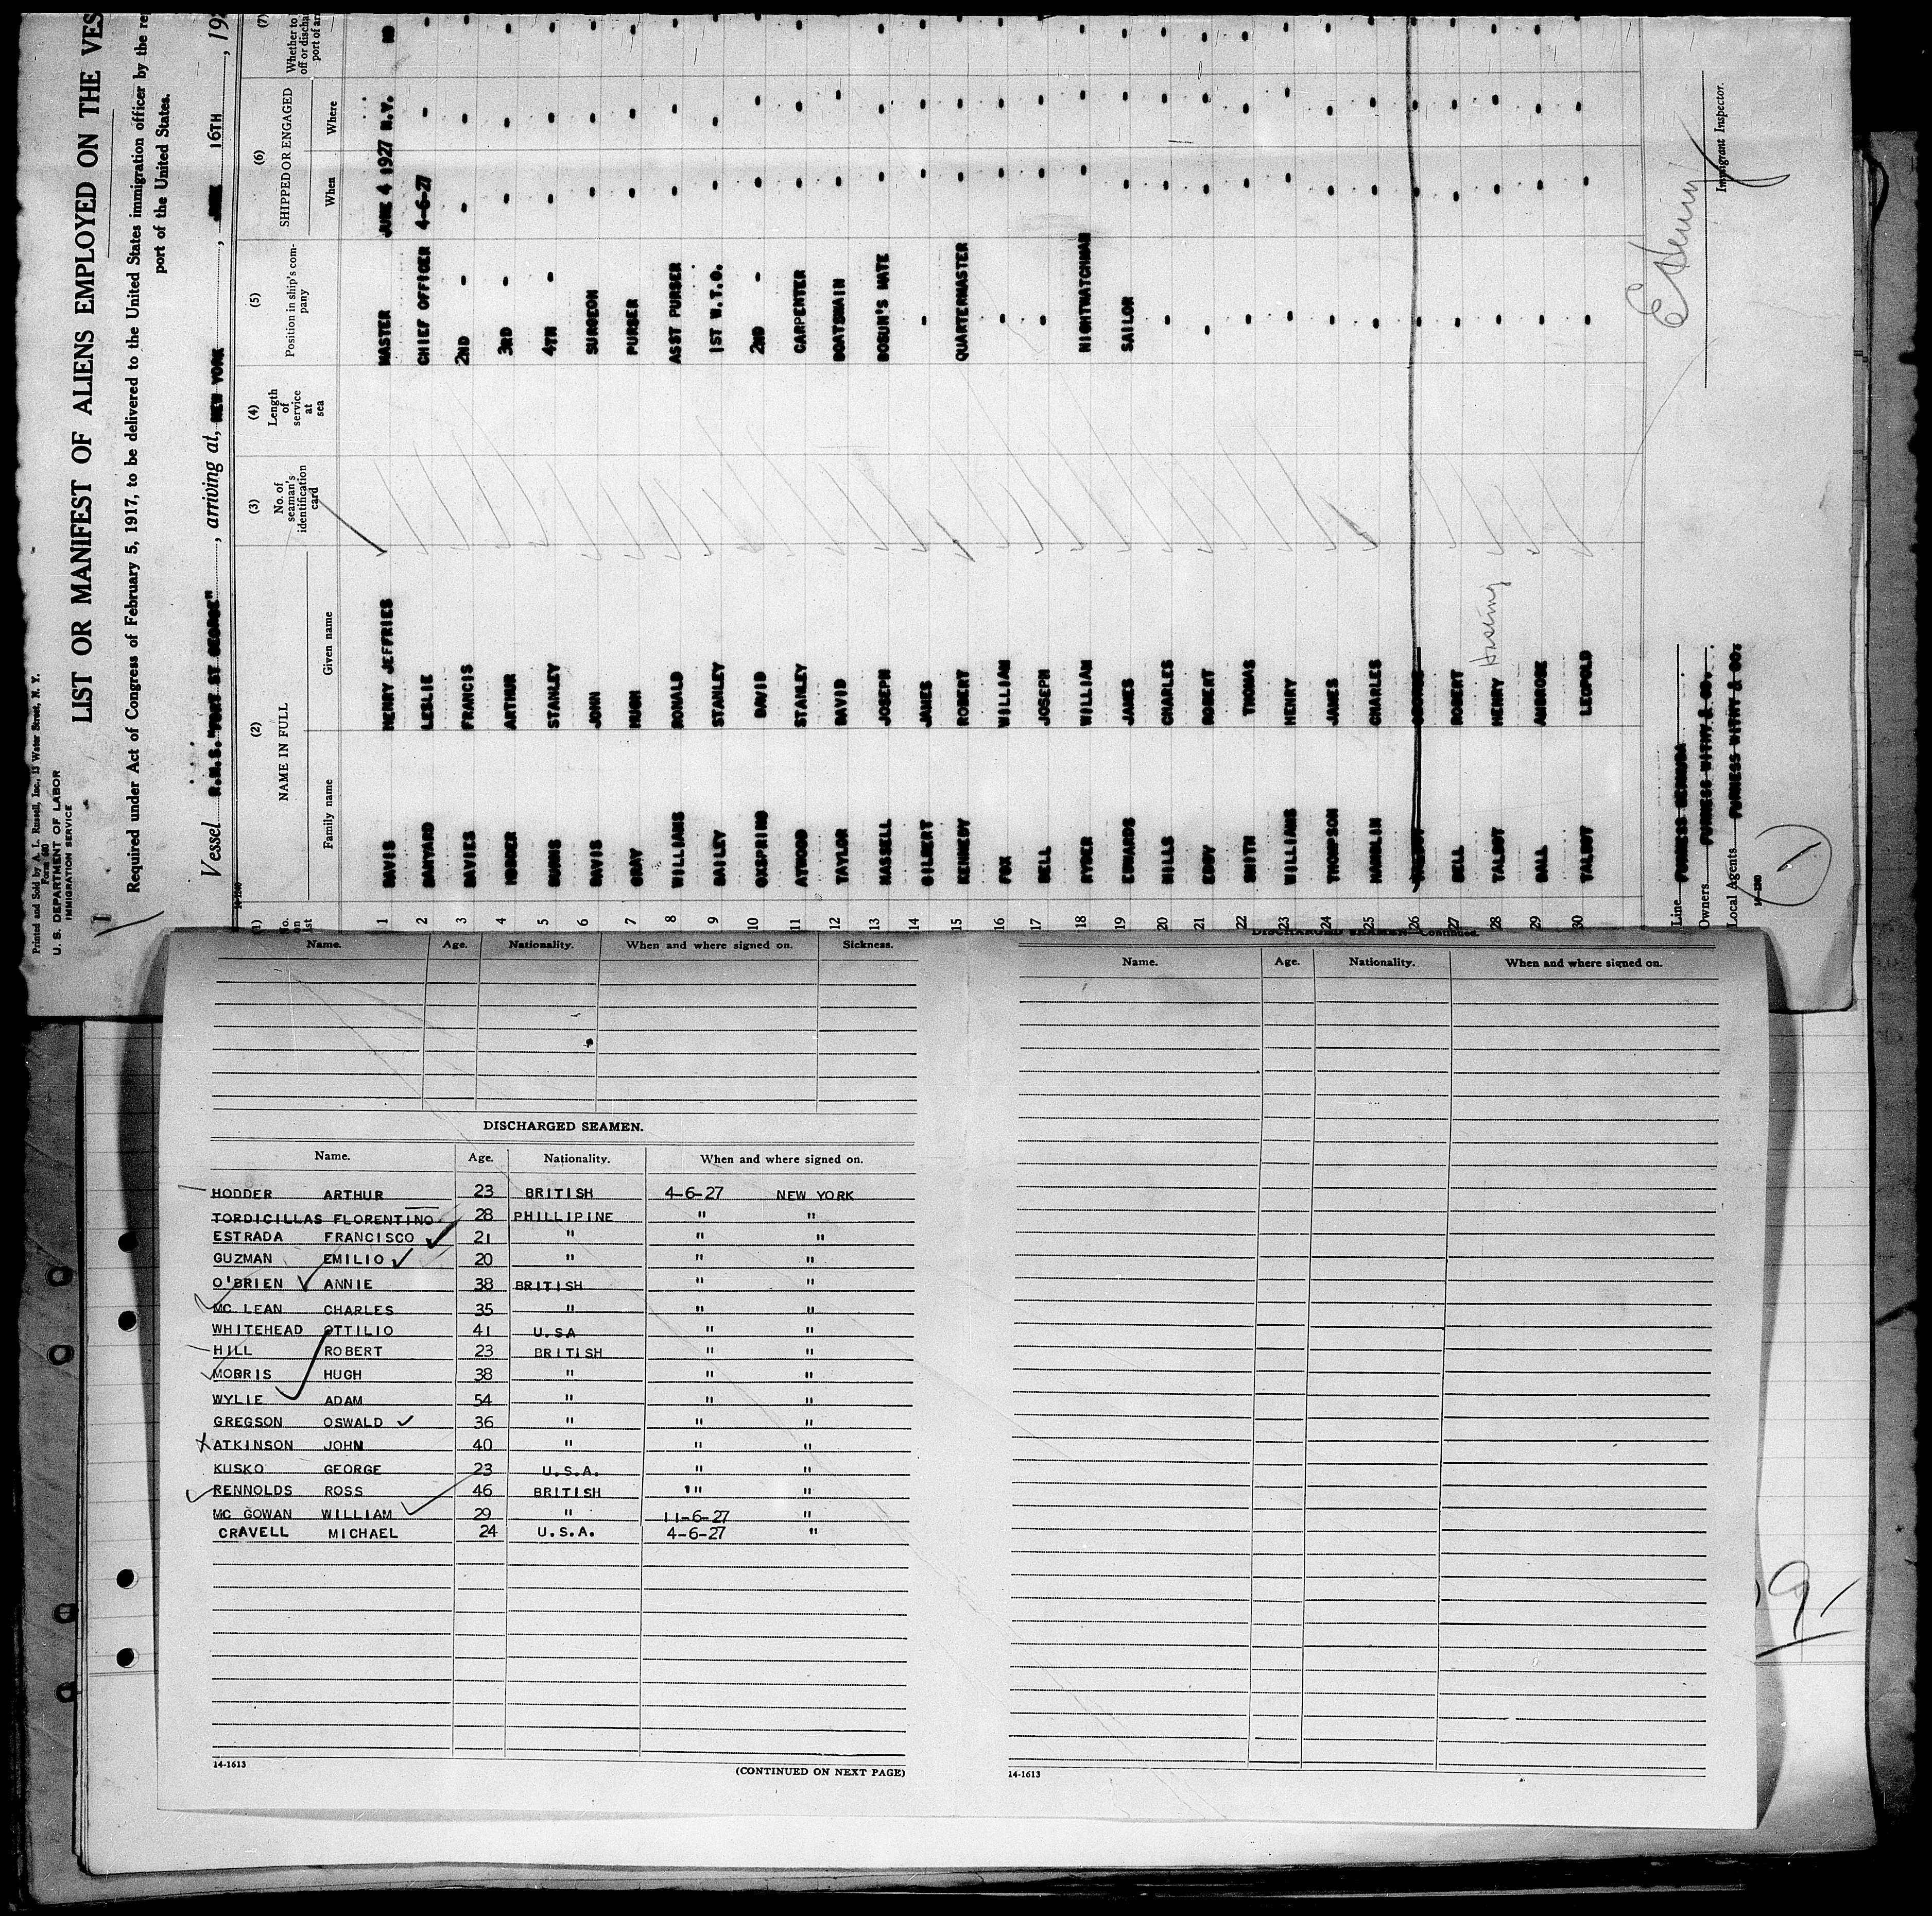 Printed and Sold by A. L. Russell, Inc., 13 Water Street, N. Y.
Form 680
U. S. DEPARTMENT OF LABOR
IMMIGRATION SERVICE
1
LIST OR MANIFEST OF ALIENS EMPLOYED ON THE VES
Required under Act of Congress of February 5, 1917, to be delivered to the United States immigration officer by the re
port of the United States.
Vessel R.M.S. "FORT ST GEORGE", arriving at, NEW YORK, JUNE 16TH, 19
(1) (2) (3) (4) (5) (6) (7)
No. on list NAME IN FULL No. of seaman's identification card Length of service at sea Position in ship's company SHIPPED OR ENGAGED Whether to
off or discha
port of ar
Family name Given name When Where
1 DAVIS HENRY JEFFRIES MASTER JUNE 4 1927 N.Y. NO
2 BANYARD LESLIE CHIEF OFFICER 4-6-27 "
3 DAVIES FRANCIS 2ND " " "
4 HODDER ARTHUR 3RD " " "
5 STANLEY 4TH " " "
6 DAVIS JOHN SURGEON " "
7 GRAY HUGH PURSER " "
8 WILLIAMS RONALD ASST PURSER " "
9 BAILEY STANLEY 1ST W.T.O. " "
10 OXSPRING DAVID 2ND " " "
11 ATWOOD STANLEY CARPENTER " "
12 TAYLOR DAVID BOATSWAIN " "
13 HASSELL JOSEPH BOSUN'S MATE " "
14 GILBERT JAMES " " "
15 KENNEDY ROBERT QUARTERMASTER " "
16 FOX WILLIAM " " "
17 BELL JOSEPH " " "
18 RYDER WILLIAM NIGHTWATCHMAN " "
19 EDWARDS JAMES SAILOR " "
20 HILLS CHARLES " " "
21 EDDY ROBERT " " "
22 SMITH THOMAS " " "
23 WILLIAMS HENRY " " "
24 THOMPSON JAMES " " "
25 HAMBLIN CHARLES " " "
26 GEORGE " " "
27 BELL ROBERT " " "
28 TALBOT HENRY " " "
29 BALL AMBROSE " " "
30 TALBOT LEOPOLD " " "
Line FURNESS BERMUDA
Owners FURNESS WITHY & CO.
Local Agents FURNESS WITHY & CO.
Immigrant Inspector.
Name. Age. Nationality. When and where signed on. Sickness.
DISCHARGED SEAMEN.
Name. Age. Nationality. When and where signed on.
HODDER ARTHUR 23 BRITISH 4-6-27 NEW YORK
TORDICILLAS FLORENTINO 28 PHILLIPINE " "
ESTRADA FRANCISCO 21 " " "
GUZMAN EMILIO 20 " " "
O'BRIEN ANNIE 38 BRITISH " "
MC LEAN CHARLES 35 " " "
WHITEHEAD OTTILIO 41 U.S.A " "
HILL ROBERT 23 BRITISH " "
MORRIS HUGH 38 " " "
WYLIE ADAM 54 " " "
GREGSON OSWALD 36 " " "
ATKINSON JOHN 40 " " "
KUSKO GEORGE 23 U.S.A. " "
RENNOLDS ROSS 46 BRITISH " "
MC GOWAN WILLIAM 29 " 11-6-27 "
CRAVELL MICHAEL 24 U.S.A. 4-6-27 "
14-1613
(CONTINUED ON NEXT PAGE)
DISCHARGED SEAMEN—Continued.
Name. Age. Nationality. When and where signed on.
14-1613
9